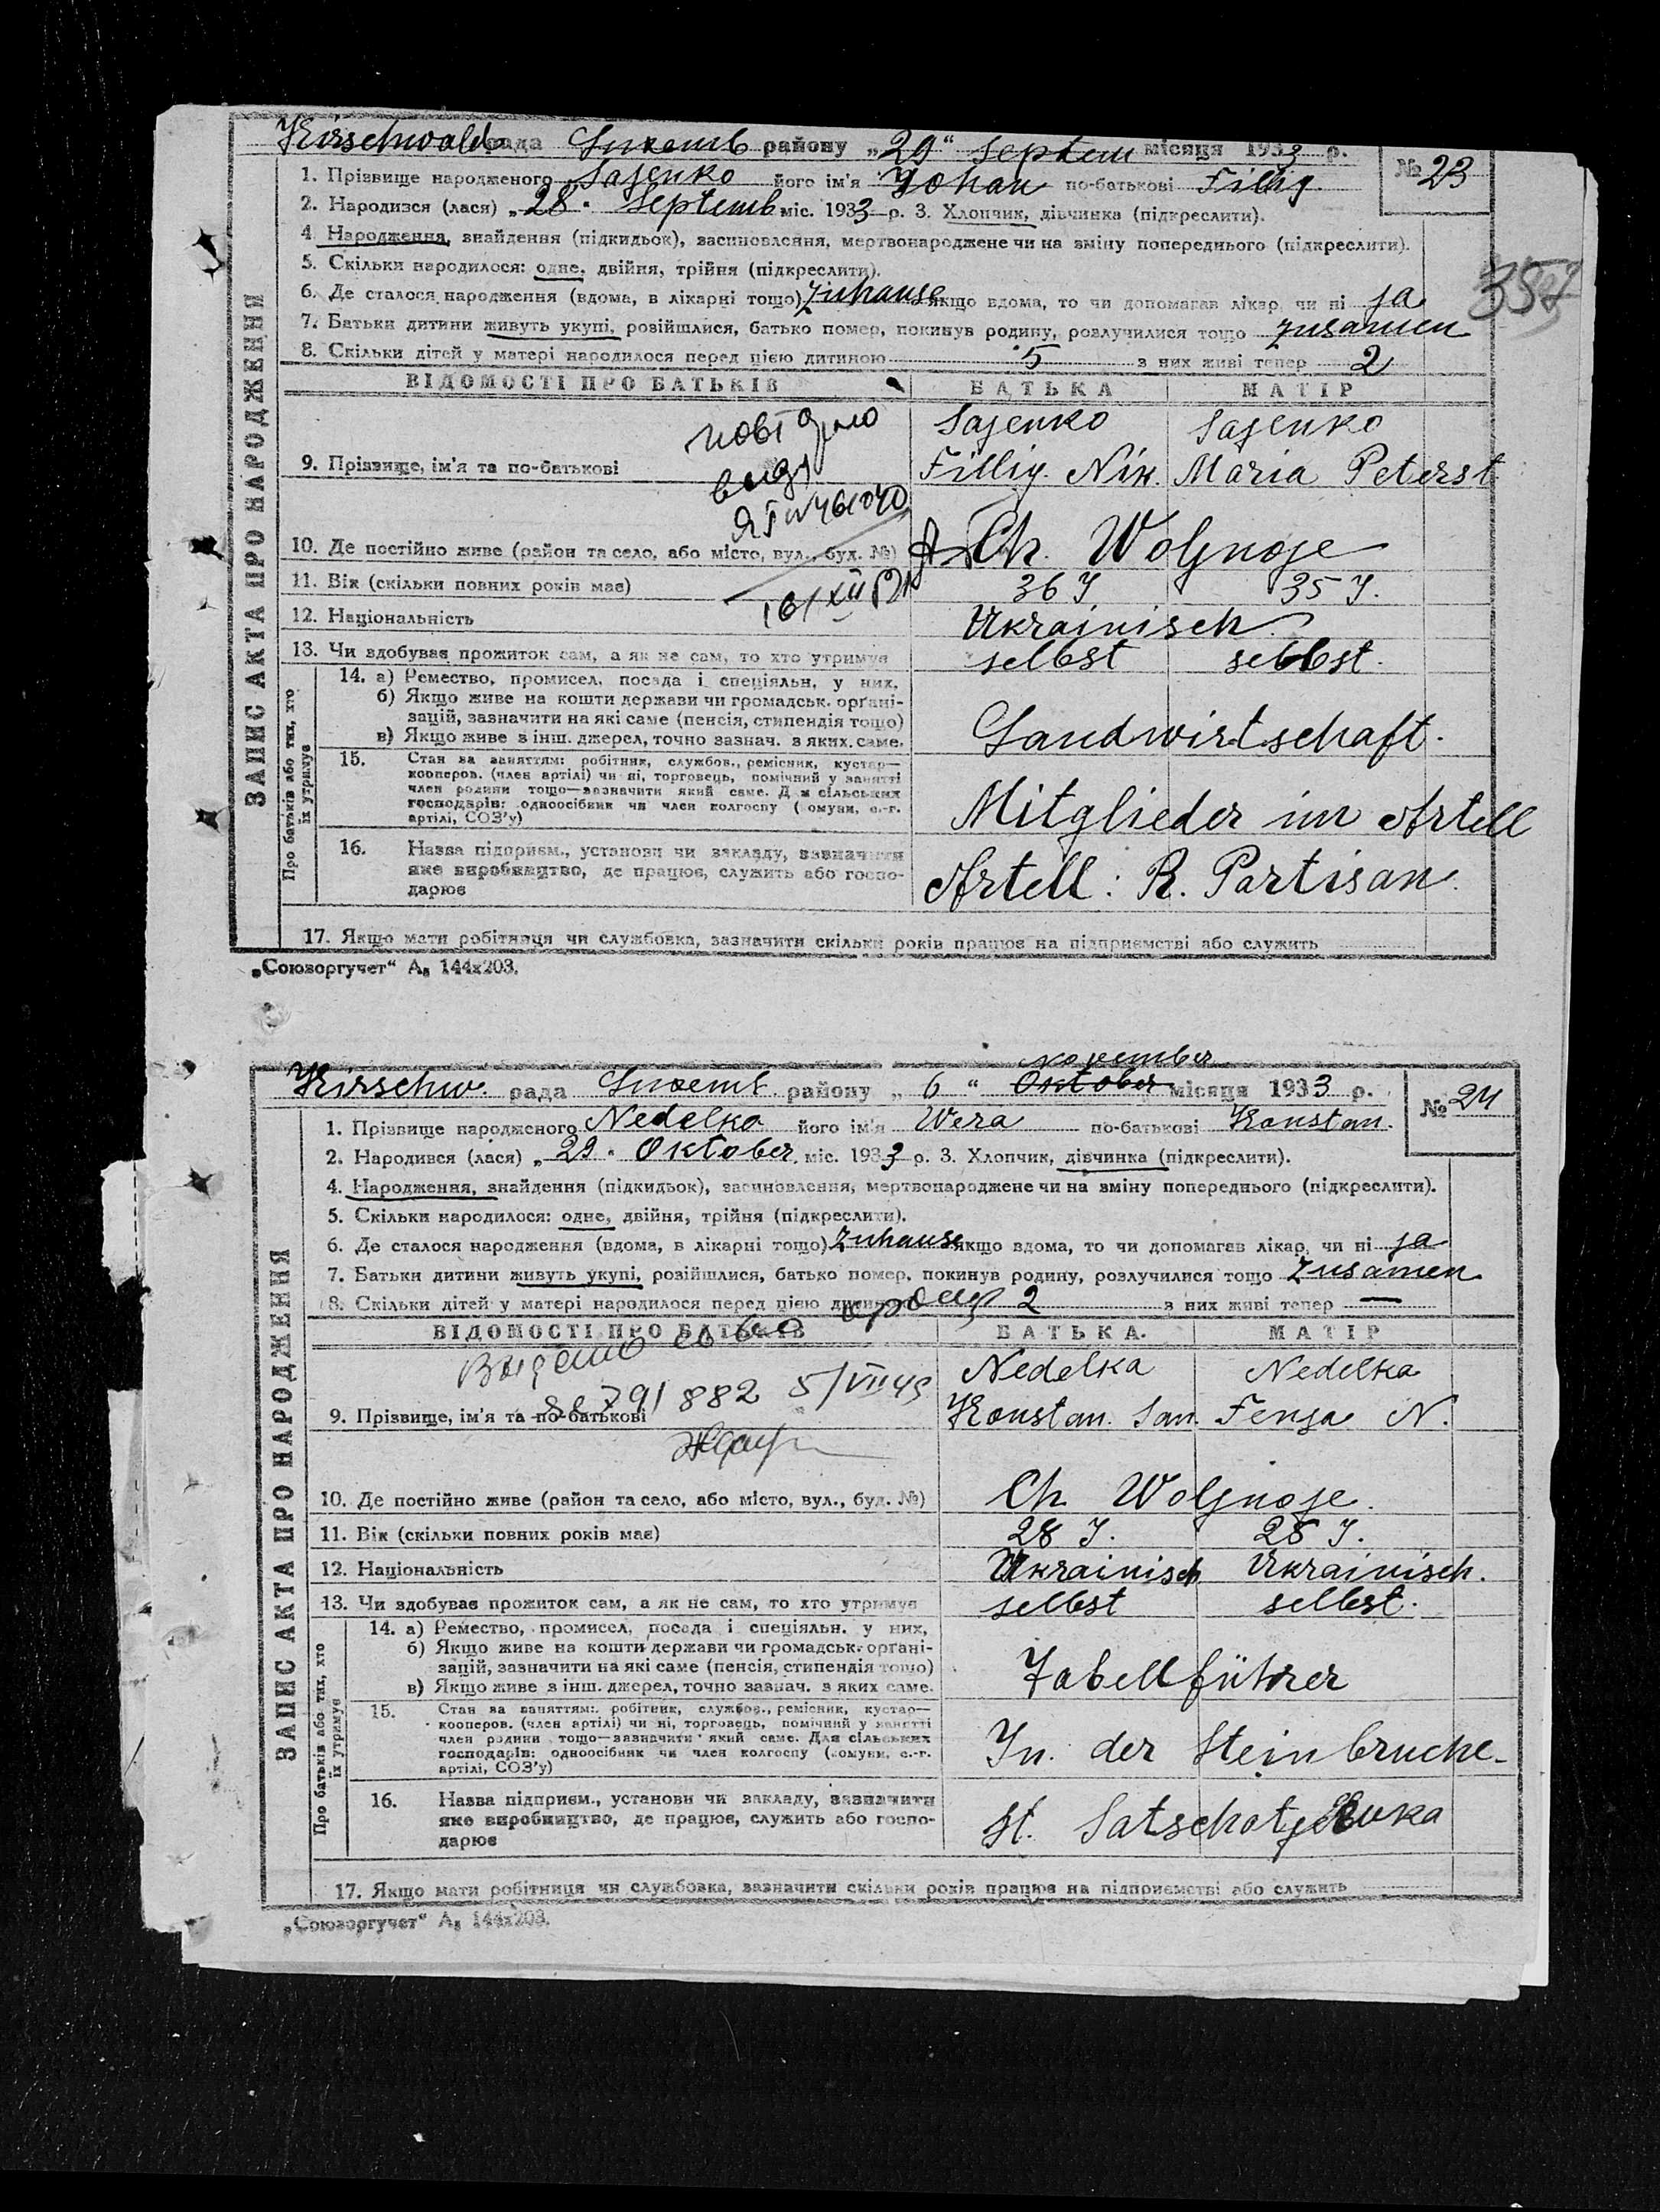 Kirschwald рада Luxemb району „29“ Septem місяця 1933 р.
№ 23
1. Прізвище народженого Sajenko його ім'я Johan по-батькові Fillig
2. Народився (лася) „28. Septemb міс. 1933 р. 3. Хлопчик, дівчинка (підкреслити).
4 Народження, знайдення (підкидьок), засиновлення, мертвонароджене чи на зміну попереднього (підкреслити).
5. Скільки народилося: одне, двійня, трійня (підкреслити).
6. Де сталося народження (вдома, в лікарні тощо) Zuhause якщо вдома, то чи допомагав лікар чи ні ja
7. Батьки дитини живуть укупі, розійшлися, батько помер, покинув родину, розлучилися тощо zusamen
8. Скільки дітей у матері народилося перед цією дитиною 5 з них живі тепер 2
ВІДОМОСТІ ПРО БАТЬКІВ БАТЬКА МАТІР
Sajenko Sajenko
9. Прізвище, ім'я та по-батькові Fillig. Nik. Maria Peterst
10. Де постійно живе (район та село, або місто, вул., буд. №) Ch. Woljnoje
11. Вік (скільки повних років має) 36 J 35 J.
12. Національність Ukrainisch
13. Чи здобуває прожиток сам, а як не сам, то хто утримує selbst selbst.
ЗАПИС АКТА ПРО НАРОДЖЕННЯ
Про батьків або тих, хто
їх утримує
14. а) Ремество, промисел, посада і спеціяльн. у них,
б) Якщо живе на кошти держави чи громадськ. органі-
зацій, зазначити на які саме (пенсія, стипендія тощо)
в) Якщо живе з інш. джерел, точно зазнач. з яких саме.
Landwirtschaft.
15. Стан за заняттям: робітник, службов., ремісник, кустар—
кооперов. (член артілі) чи ні, торговець, помічний у занятті
член родини тощо—зазначити який саме. Для сільських
господарів: одноосібник чи член колгоспу (комуни, с.-г.
артілі, СОЗ'у)
Mitglieder im Artell
16. Назва підприєм., установи чи закладу, зазначити
яке виробництво, де працює, служить або госпо-
дарює
Artell: R. Partisan.
17. Якщо мати робітниця чи службовка, зазначити скільки років працює на підприємстві або служить
„Союзоргучет“ А₅ 144х203.
November
Kirschw. рада Luxemb. району „ 6 “ Oktober місяця 1933 р.
№ 24
1. Прізвище народженого Nedelka його ім'я Wera по-батькові Konstan.
2. Народився (лася) „29. Oktober. міс. 1933 р. 3. Хлопчик, дівчинка (підкреслити).
4. Народження, знайдення (підкидьок), засиновлення, мертвонароджене чи на зміну попереднього (підкреслити).
5. Скільки народилося: одне, двійня, трійня (підкреслити).
6. Де сталося народження (вдома, в лікарні тощо) Zuhause якщо вдома, то чи допомагав лікар, чи ні ja
7. Батьки дитини живуть укупі, розійшлися, батько помер, покинув родину, розлучилися тощо Zusamen
8. Скільки дітей у матері народилося перед цією дитиною 2 з них живі тепер —
ВІДОМОСТІ ПРО БАТЬКІВ БАТЬКА. МАТІР
Nedelka Nedelka
882 5/VII 49
9. Прізвище, ім'я та по-батькові Konstan. San. Fenja N.
10. Де постійно живе (район та село, або місто, вул., буд. №) Ch. Woljnoje.
11. Вік (скільки повних років має) 28 J. 28 J.
12. Національність Ukrainisch Ukrainisch.
13. Чи здобуває прожиток сам, а як не сам, то хто утримує selbst selbst.
ЗАПИС АКТА ПРО НАРОДЖЕННЯ
Про батьків або тих, хто
їх утримує
14. а) Ремество, промисел, посада і спеціяльн. у них,
б) Якщо живе на кошти держави чи громадськ. органі-
зацій, зазначити на які саме (пенсія, стипендія тощо)
в) Якщо живе з інш. джерел, точно зазнач. з яких саме.
Tabellführer
15. Стан за заняттям: робітник, службов., ремісник, кустар—
кооперов. (член артілі) чи ні, торговець, помічний у занятті
член родини тощо—зазначити який саме. Для сільських
господарів: одноосібник чи член колгоспу (комуни, с.-г.
артілі, СОЗ'у)
In. der Steinbruche
16. Назва підприєм., установи чи закладу, зазначити
яке виробництво, де працює, служить або госпо-
дарює
St.
17. Якщо мати робітниця чи службовка, зазначити скільки років працює на підприємстві або служить
„Союзоргучет“ А₅ 144х203.